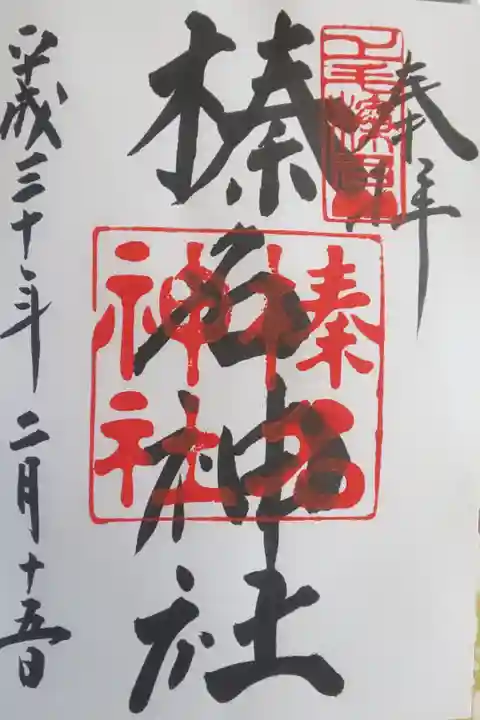 奉拝
榛名神社
榛名
神社
平成三十年二月十五日